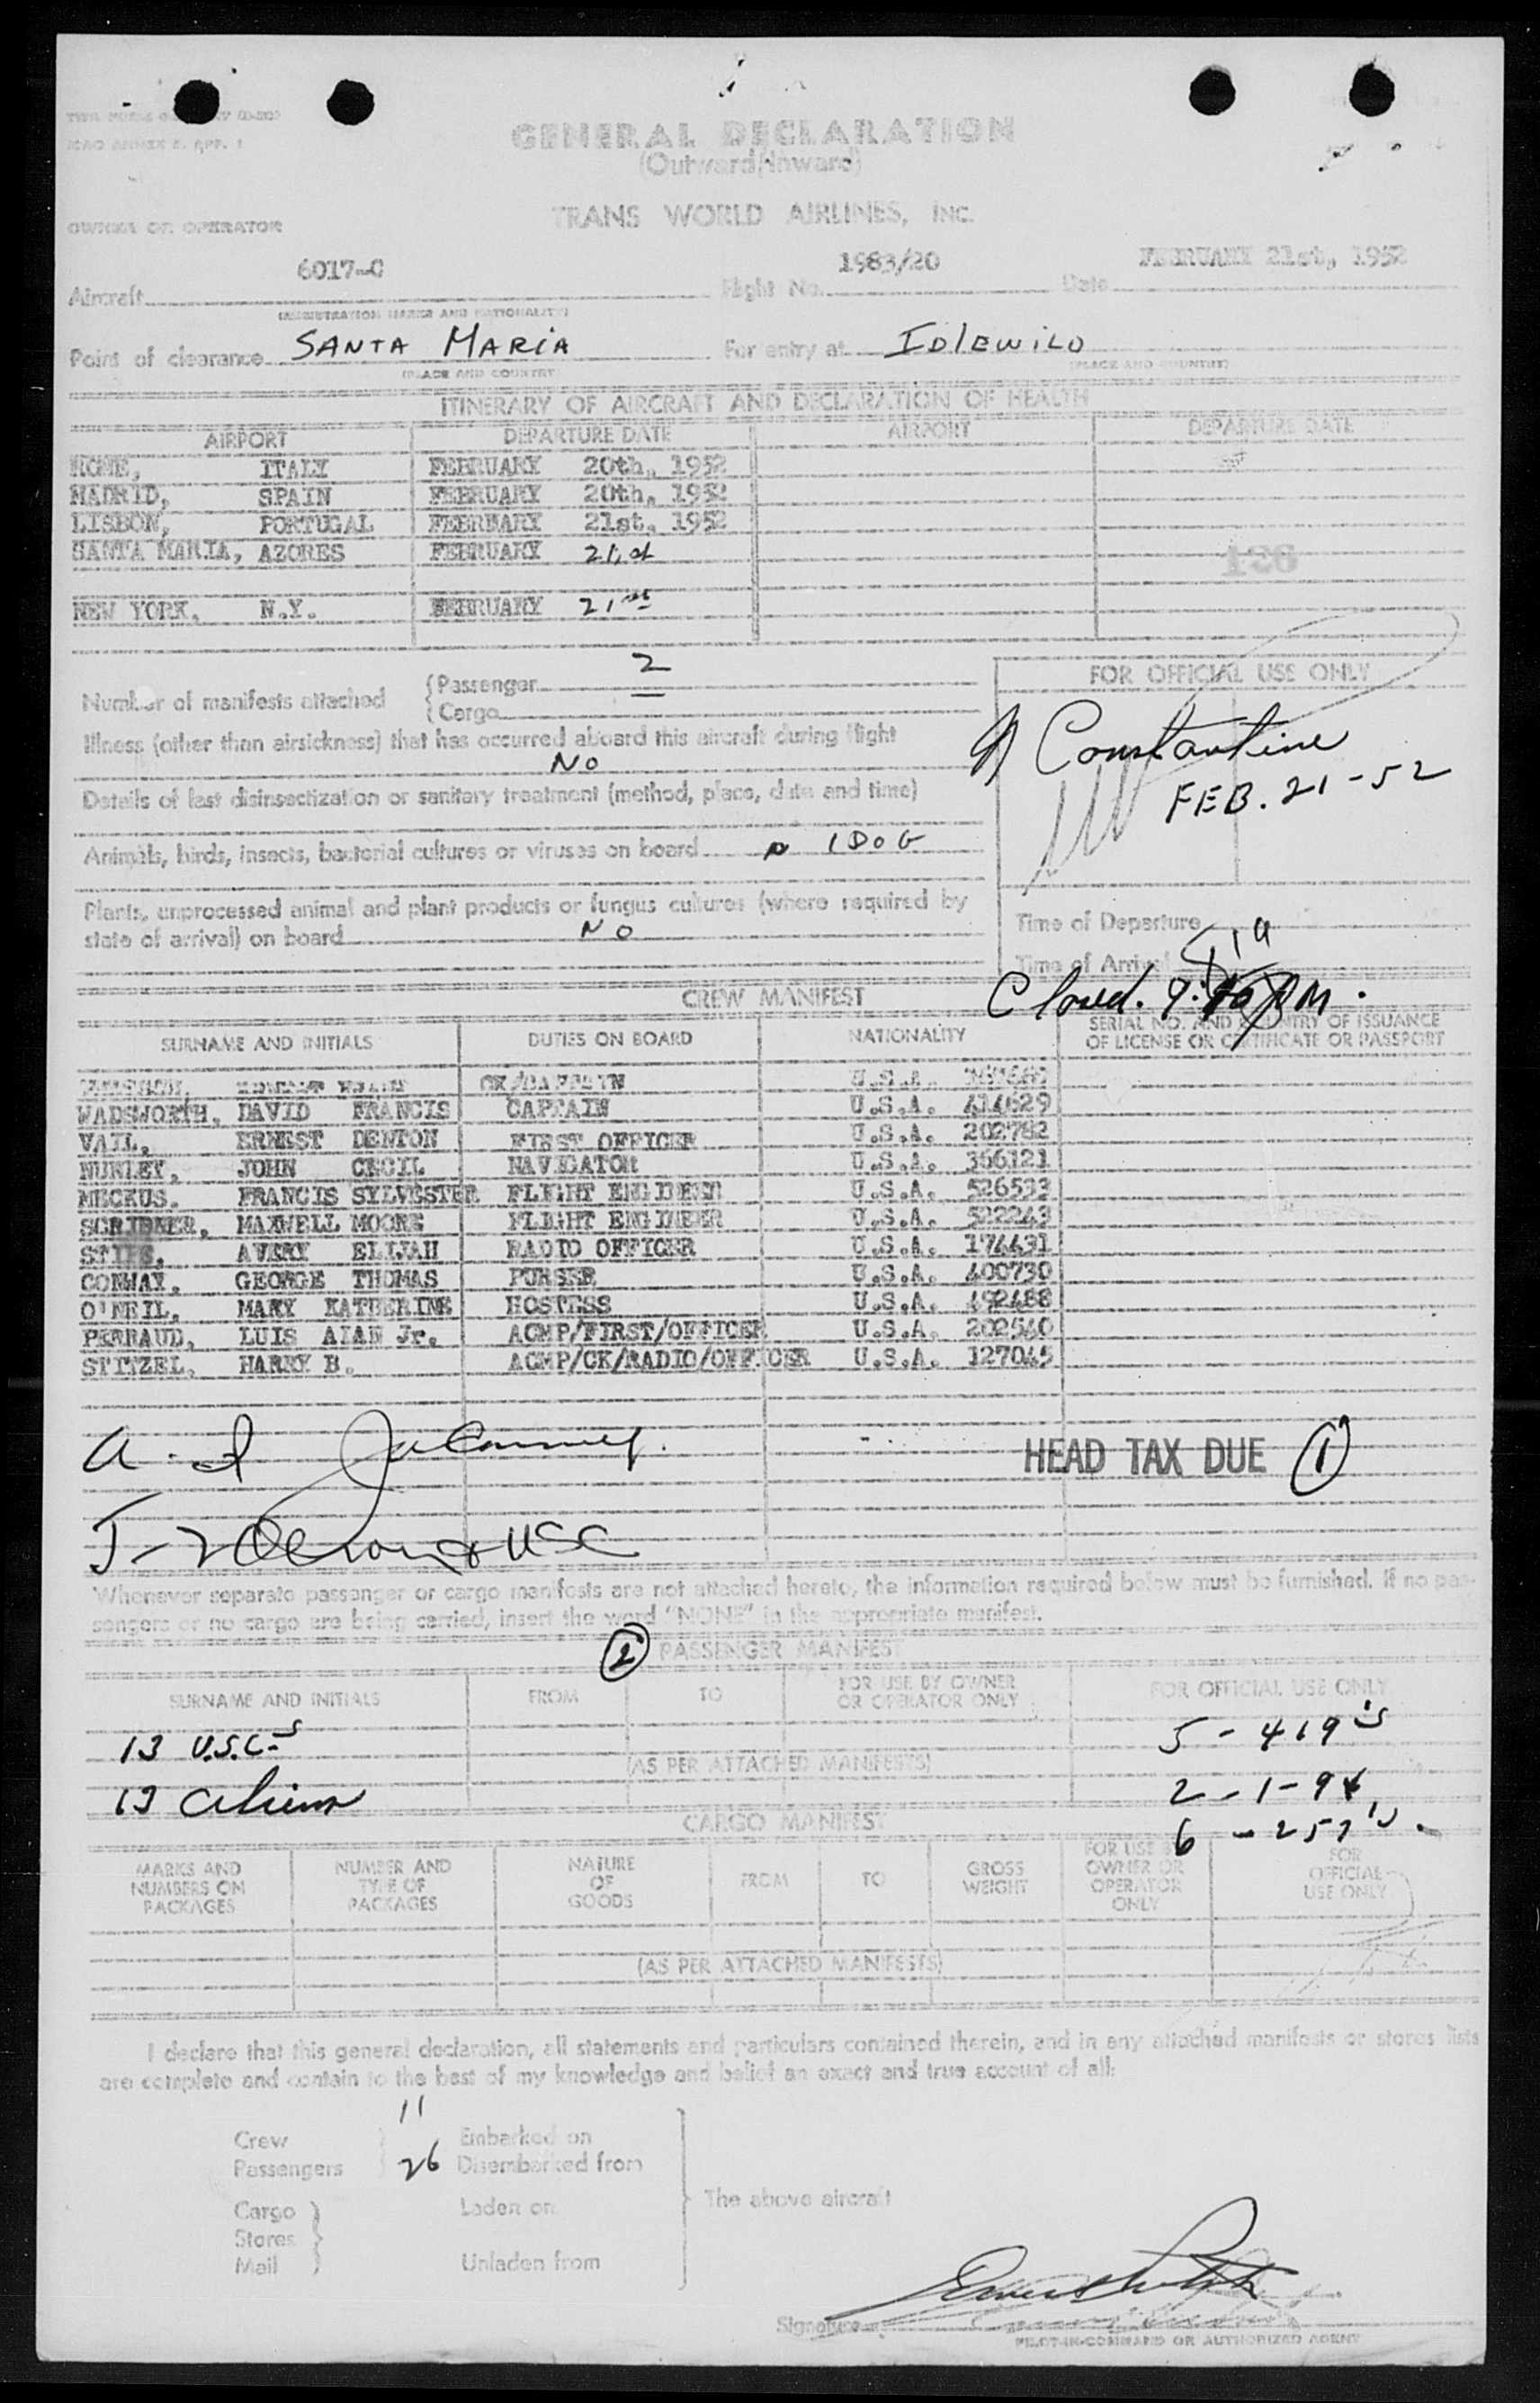 GENERAL DECLARATION
(Outward/Inward)
TRANS WORLD AIRLINES, INC.
OWNER OR OPERATOR
Aircraft 6017-C Flight No. 1983/20 Date FEBRUARY 21st, 1952
(REGISTRATION MARKS AND NATIONALITY)
Point of clearance SANTA MARIA For entry at IDLEWILD
(PLACE AND COUNTRY (PLACE AND COUNTRY)
ITINERARY OF AIRCRAFT AND DECLARATION OF HEALTH
AIRPORT DEPARTURE DATE AIRPORT DEPARTURE DATE
ROME, ITALY FEBRUARY 20th, 1952
MADRID, SPAIN FEBRUARY 20th, 1952
LISBON, PORTUGAL FEBRUARY 21st, 1952
SANTA MARIA, AZORES FEBRUARY 21st
126
NEW YORK, N.Y. FEBRUARY 21st
Number of manifests attached {Passenger 2
{Cargo
FOR OFFICIAL USE ONLY
Illness (other than airsickness) that has occurred aboard this aircraft during flight
No
Constantine
FEB. 21-52
Details of last disinsectization or sanitary treatment (method, place, date and time)
Animals, birds, insects, bacterial cultures or viruses on board 1 DOG
Plants, unprocessed animal and plant products or fungus cultures (where required by
state of arrival) on board No
Time of Departure
Time of Arrival
Closed.
CREW MANIFEST
SURNAME AND INITIALS DUTIES ON BOARD NATIONALITY SERIAL NO. AND COUNTRY OF ISSUANCE
OF LICENSE OR CERTIFICATE OR PASSPORT
CK/CAPTAIN U.S.A.
WADSWORTH, DAVID FRANCIS CAPTAIN U.S.A. 414629
VAIL, ERNEST DENTON FIRST OFFICER U.S.A. 202782
NURLEY, JOHN CECIL NAVIGATOR U.S.A. 366121
MECKUS. FRANCIS SYLVESTER FLIGHT ENGINEER U.S.A. 526533
SCRIBNER, MAXWELL MOORE FLIGHT ENGINEER U.S.A. 522243
STIPS, AVERY ELIJAH RADIO OFFICER U.S.A. 174431
CONWAY, GEORGE THOMAS PURSER U.S.A. 400730
O'NEIL, MARY KATHERINE HOSTESS U.S.A. 492488
PERRAUD, LUIS ALAN Jr. ACMP/FIRST/OFFICER U.S.A. 202540
SPITZEL, HARRY B. ACMP/CK/RADIO/OFFICER U.S.A. 127045
HEAD TAX DUE 1
Whenever separate passenger or cargo manifests are not attached hereto, the information required below must be furnished. If no pas-
sengers or no cargo are being carried, insert the word "NONE" in the appropriate manifest.
2 PASSENGER MANIFEST
SURNAME AND INITIALS FROM TO FOR USE BY OWNER
OR OPERATOR ONLY FOR OFFICIAL USE ONLY
13 U.S.C.s 5 - 419's
(AS PER ATTACHED MANIFESTS)
13 aliens 2 - 1-94
6 - 257's
CARGO MANIFEST
MARKS AND
NUMBERS ON
PACKAGES NUMBER AND
TYPE OF
PACKAGES NATURE
OF
GOODS FROM TO GROSS
WEIGHT FOR USE BY
OWNER OR
OPERATOR
ONLY FOR
OFFICIAL
USE ONLY
(AS PER ATTACHED MANIFESTS)
I declare that this general declaration, all statements and particulars contained therein, and in any attached manifests or stores lists
are complete and contain to the best of my knowledge and belief an exact and true account of all:
Crew 11 Embarked on
Passengers 26 Disembarked from
The above aircraft
Cargo Laden on
Stores
Mail Unladen from
Signature
PILOT-IN-COMMAND OR AUTHORIZED AGENT